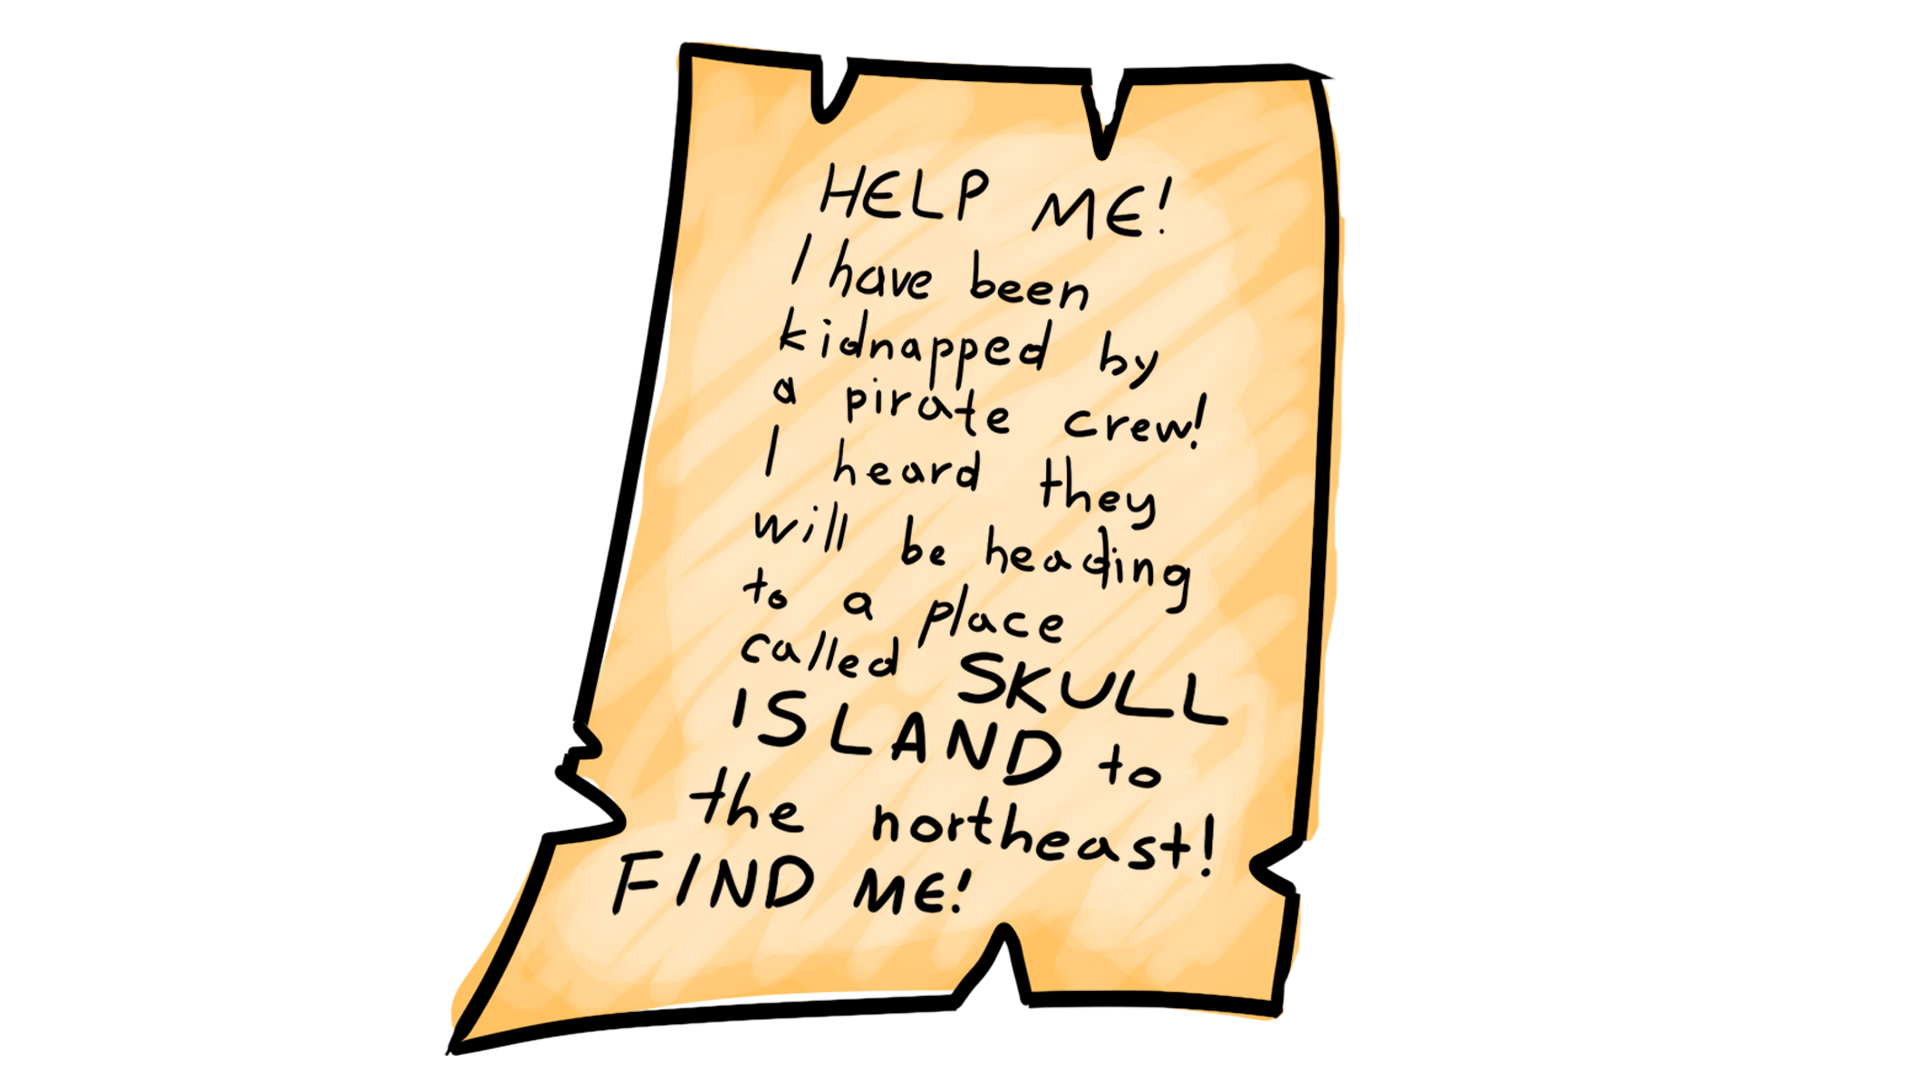 HELP ME!
I have been
kidnapped by
a pirate crew!
I heard they
will be heading
to a place
called SKULL
ISLAND to
the northeast!
FIND ME!